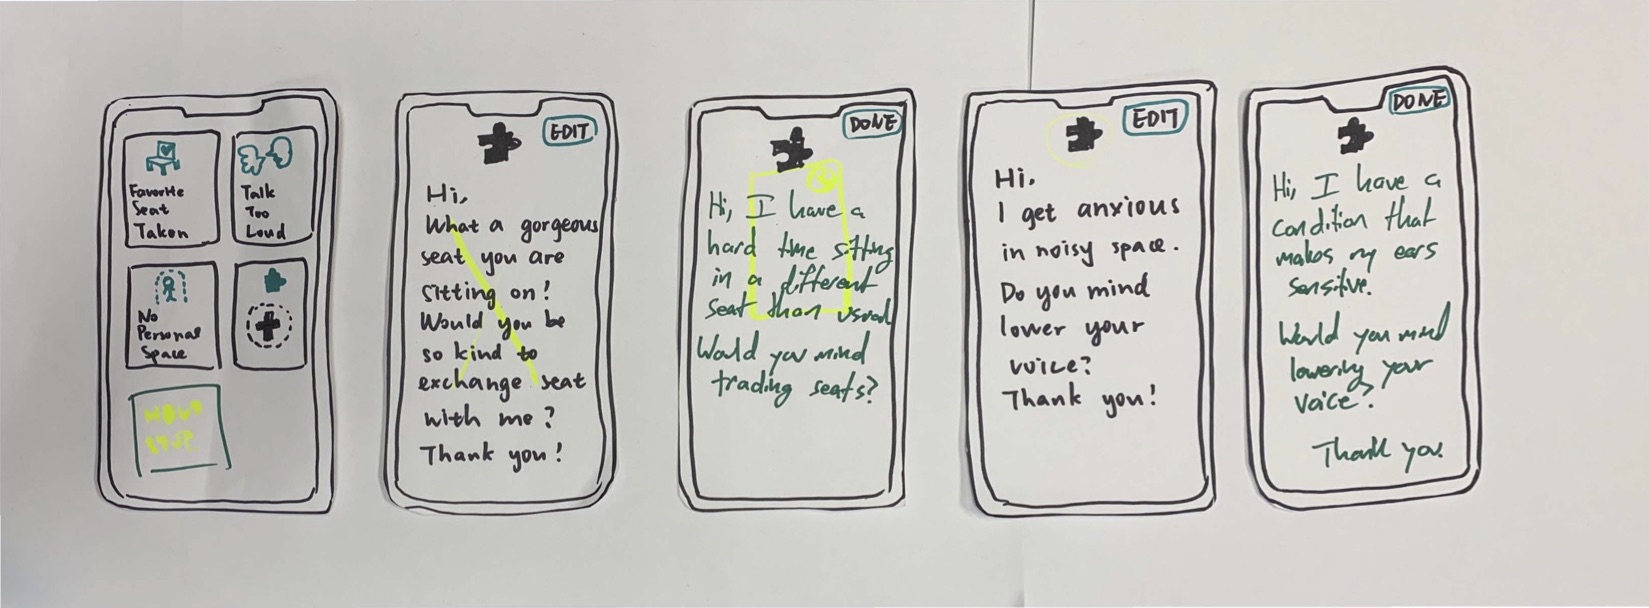 Favorite
Seat
Taken
Talk
Too
Loud
No
Personal
Space
EDIT
Hi,
What a gorgeous
seat you are
sitting on!
Would you be
so kind to
exchange seat
with me?
Thank you!
DONE
Hi, I have a
hard time sitting
in a different
seat than usual
Would you mind
trading seats?
EDIT
Hi.
I get anxious
in noisy space.
Do you mind
lower your
voice?
Thank you!
DONE
Hi, I have a
condition that
makes my ears
sensitive.
Would you mind
lowering your
voice?
Thank you.